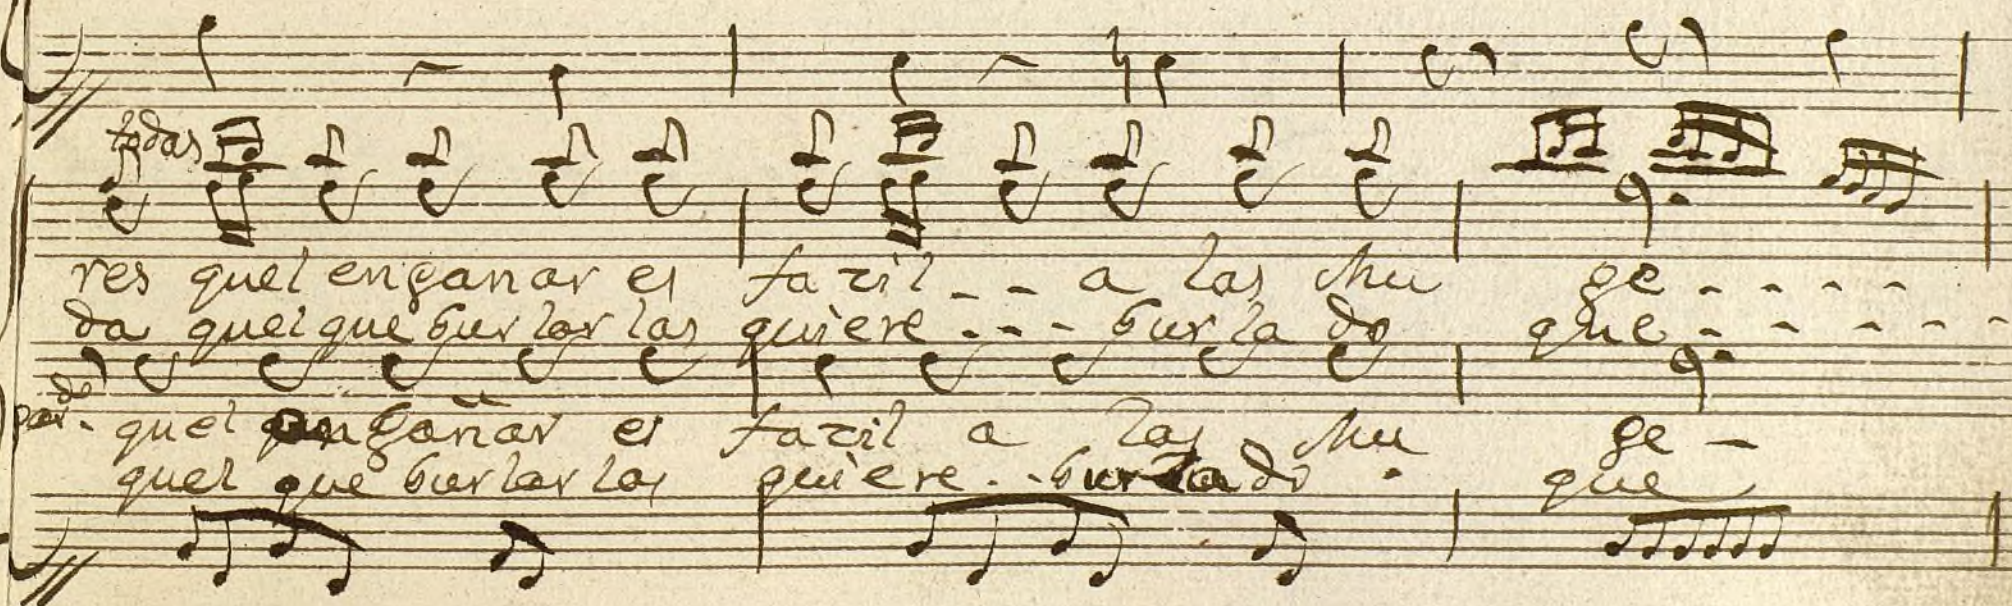 todas
res quel enganar es fazil - - a las Mu ge - - - - -
da quel que burlar las quiere - - - burla do que - - - - -
par.do quel engañar es fazil a las Mu ge -
quel que burlar las quiere - - burlado que